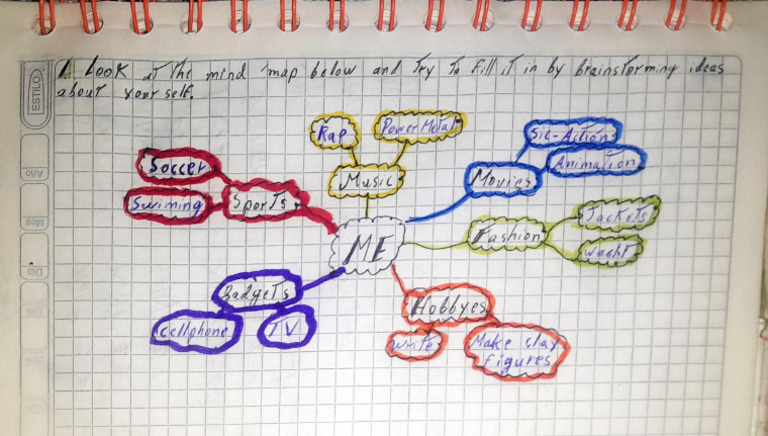 1 Look at the mind map below and try to fill it in by brainstorming ideas
about your self.
ESTILO
Rap
Power Metal
Sic-Action
Animation
Soccer
Music
Movies
Swiming
Sports
Jackets
ME
Fashion
Wacht
Gadgets
Hobbyes
Cellphone
TV
Write
Make clay
figures
Año
Mes
Día